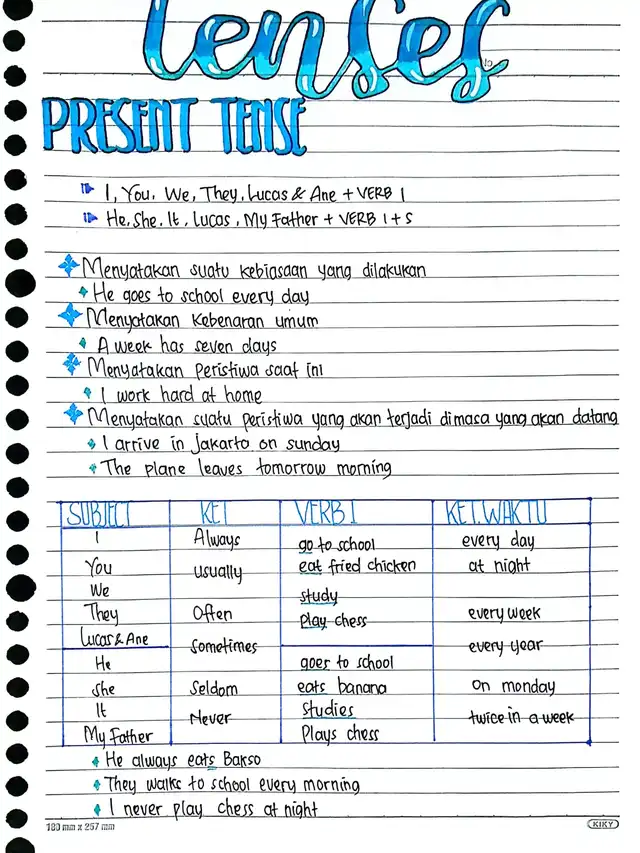 Tenses
10
PRESENT TENSE
I, You, We, They, Lucas & Ane + VERB 1
He, She, It, Lucas, My Father + VERB 1 + S
Menyatakan suatu kebiasaan yang dilakukan
He goes to school every day
Menyatakan kebenaran umum
A week has seven days
Menyatakan peristiwa saat ini
I work hard at home
Menyatakan suatu peristiwa yang akan terjadi dimasa yang akan datang
I arrive in Jakarta on sunday
The plane leaves tomorrow morning
SUBJECT KET VERB 1 KET.WAKTU
I Always go to school every day
You usually eat fried chicken at night
We study
They Often play chess every week
Lucas & Ane sometimes every year
He goes to school
She Seldom eats banana on monday
It Never studies twice in a week
My Father Plays chess
He always eats Bakso
They walks to school every morning
I never play chess at night
180 mm x 257 mm KIKY